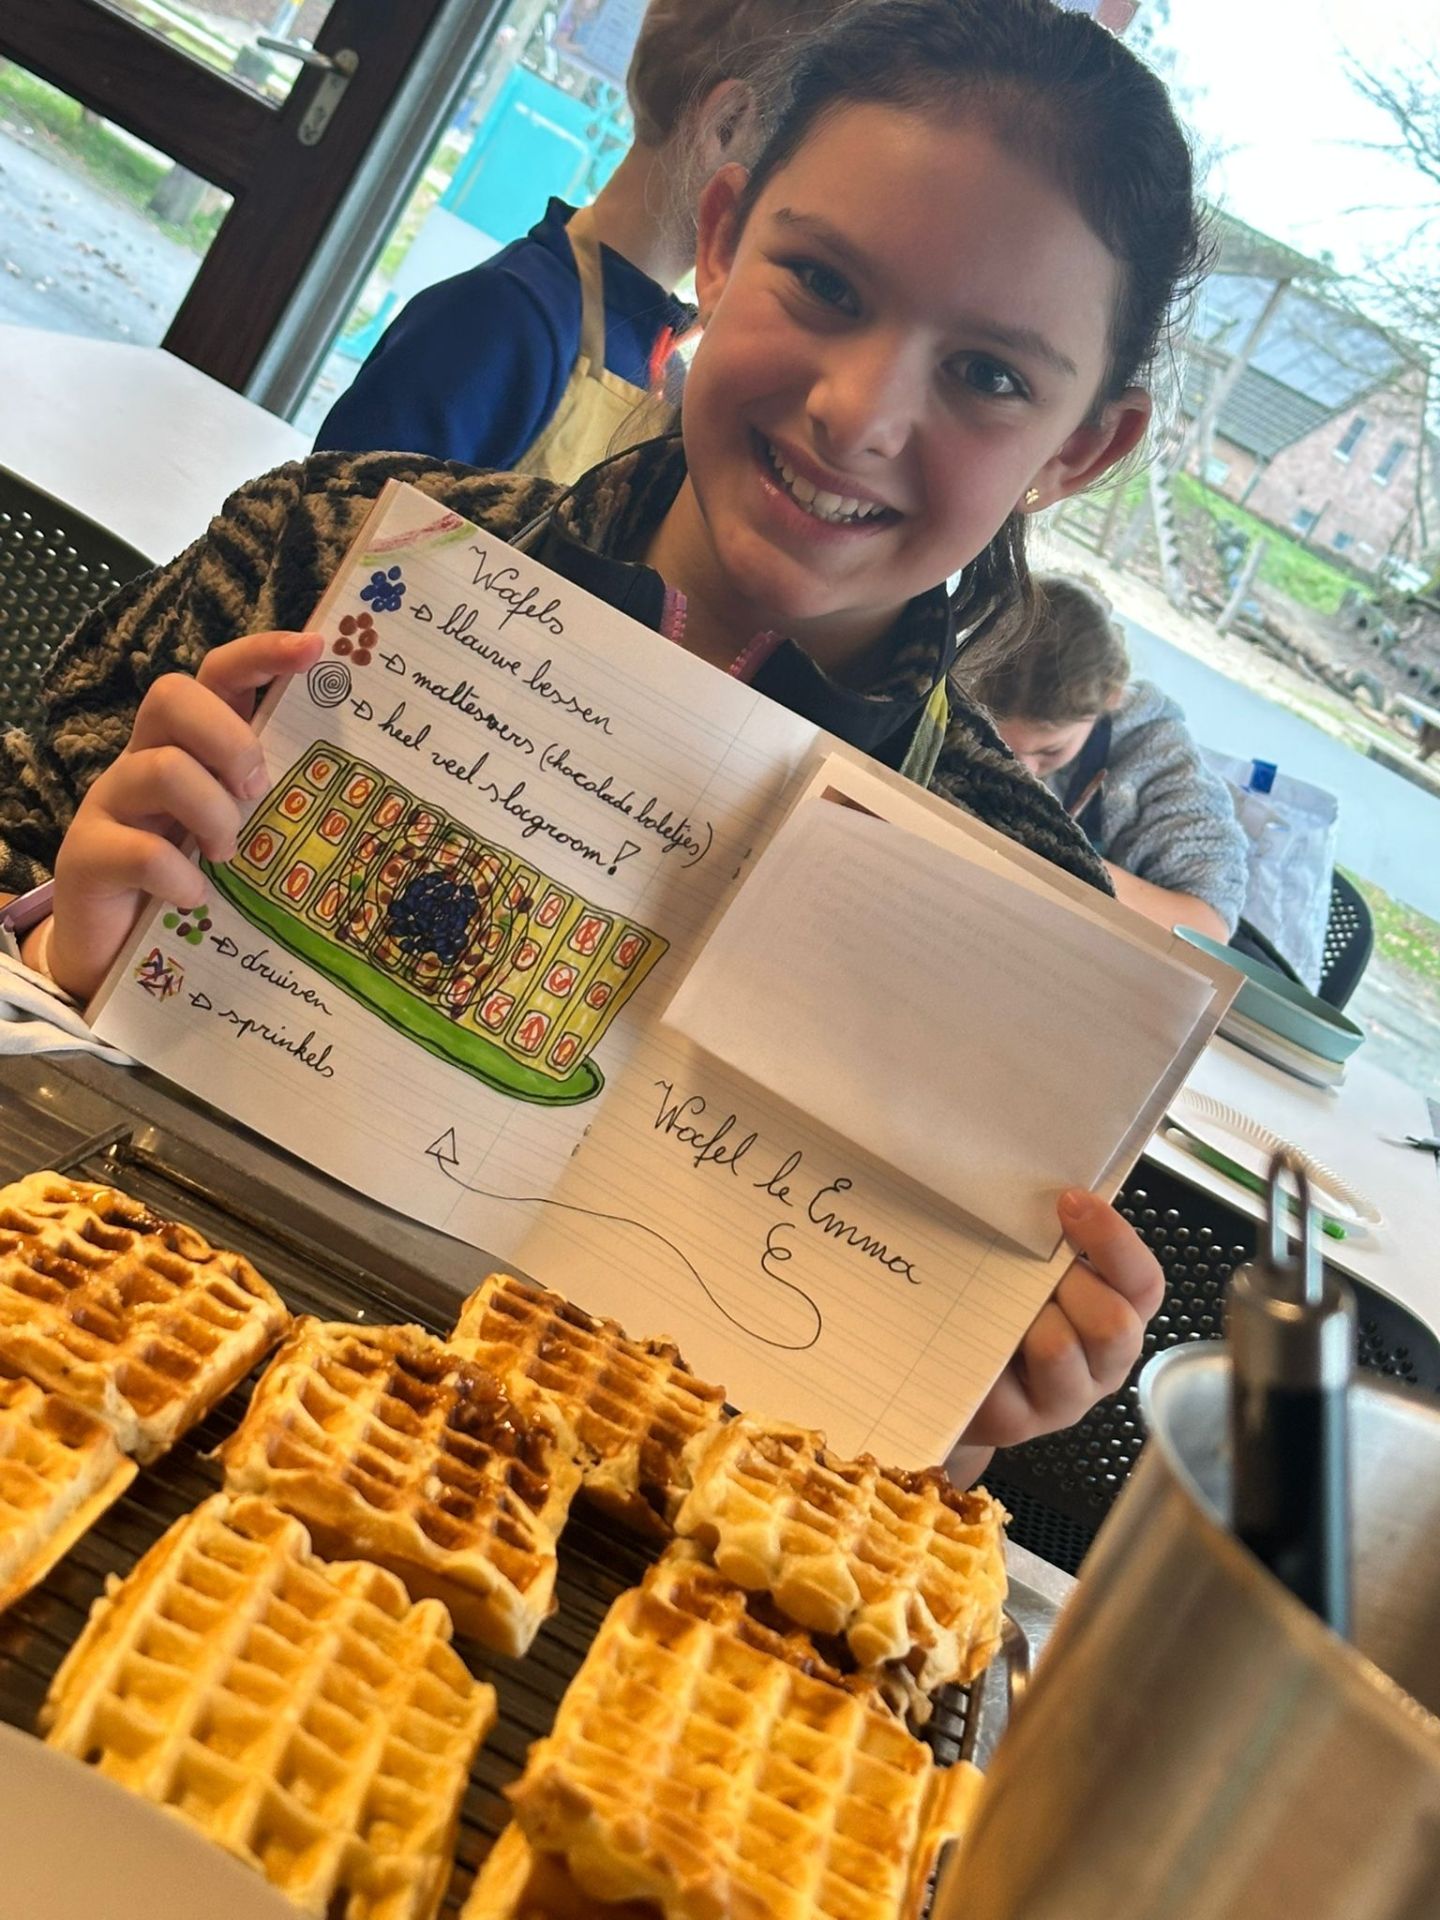 Wafels
blauwe bessen
maltesers (chocolade boletjes)
heel veel slagroom!
druiven
sprinkels
Wafel le Emma
E